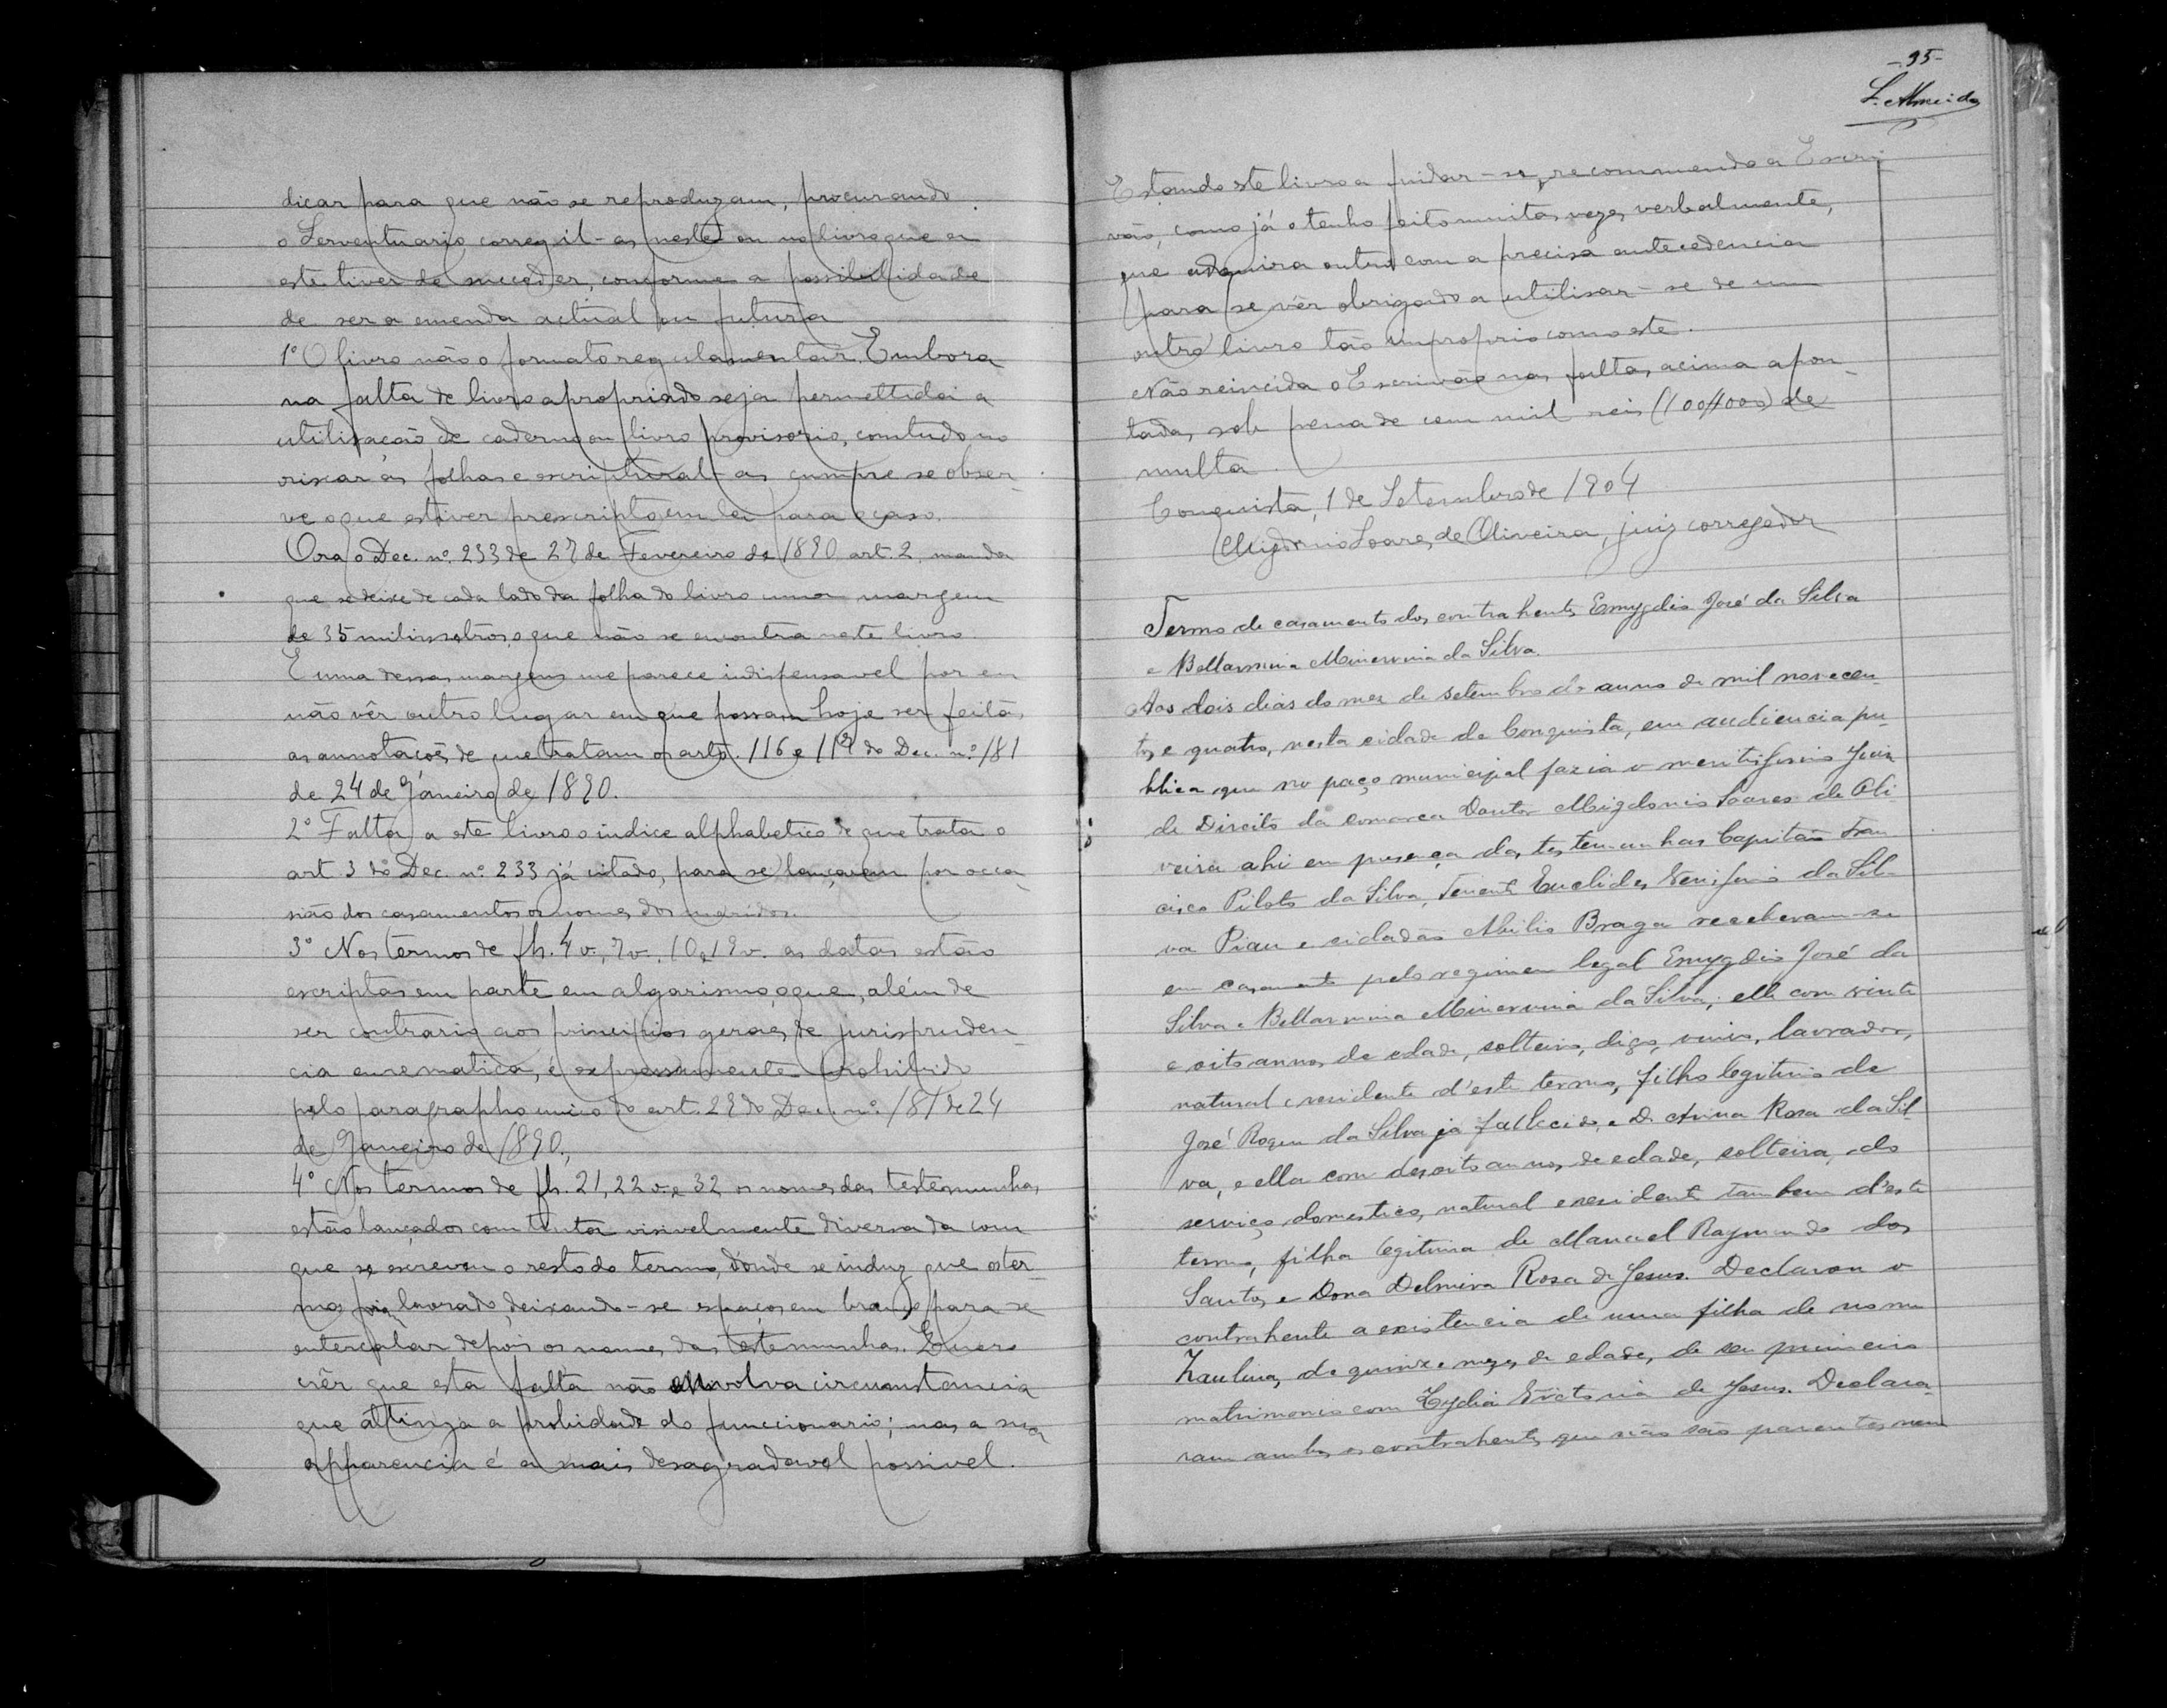 dicar para que não se reproduzam, procurando
o Serventuario corregil-as neste ou no livro que a
este tiver de succeder, conforme a possibilidade
de ser a emenda actual ou futura
1º O livro não o formato regulamentar. Embora
na falta de livro apropriado seja permettida a
utilisação de caderno ou livro provisorio, comtudo no
riscar as folhas e escriptural-as cumpre se obser-
ve o que estiver prescripto em lei para o caso.
Ora o Dec. nº. 233 de 27 de Fevereiro de 1890 art. 2. manda
que se deixe de cada lado da folha do livro uma margem
de 35 milimetros, o que não se encontra neste livro
E uma dessas margens me parece indispensavel por eu
não vêr outro lugar em que possam hoje ser feitas
as annotações de que tratam os arts. 116 e 119 do Dec. nº. 181
de 24 de Janeiro de 1890.
2º Falta a este livro o indice alphabetico de que trata o
art 3 do Dec. nº. 233 já citado, para se lançarem por occa-
sião dos casamentos os nomes dos maridos.
3º Nos termos de fh. 4 v., 7 v., 10, 19 v. as datas estão
escriptas em parte em algarismo, o que, além de
ser contrario aos principios geraes de jurispruden-
cia euremática, é expressamente prohibido
pelo paragrapho unico do art. 29 do Dec. nº. 181 de 24
de Janeiro de 1890.,
4º Nos termos de fh. 21, 22 v. e 32 os nomes das testemunhas
estão lançados com tinta visivelmente diversa da com
que se escreveu o resto do termo, dónde se induz que o ter-
mo foi lavrado, deixando-se espaços em branco para se
entercalar depois os nomes das testemunhas. Quero
crêr que esta falta não envolva circumstancia
que attinja a probidade do funccionario; mas a sua
apparencia é a mais desagradavel possivel.
-95-
L. Almeida
Estando este livro a findar-se, recommendo a Escri-
vão, como já o tenho feito muitas vezes verbalmente,
que adquira outro com a precisa antecedencia
para se vêr obrigado a utilisar-se de um
outro livro tão improprio como este.
Não reincida o Escrivão nas faltas acima apon-
tadas sob pena de cem mil reis (100#000) de
multa.
Conquista, 1 de Setembro de 1904
Migdonio Soares de Oliveira, juiz corregedor
Termo de casamento dos contrahentes Emygdio José da Silva
e Bellarmina Minervina da Silva.
Aos dois dias do mez de setembro do anno de mil novecen-
tos e quatro, nesta cidade de Conquista, em audiencia pu-
blica que no paço municipal fazia o meritissimo Juiz
de Direito da comarca Doutor Migdonio Soares de Oli-
veira ahi em presença das testemunhas Capitão Fran
cisco Piloto da Silva, Tenente Euclides da Sil-
va Piau e cidadão Abilio Braga receberam-se
em casamento pelo regimen legal Emygdio José da
Silva e Bellarmina Minervina da Silva; elle com vinte
e oito annos de edade, solteiro, digo, viuvo, lavrador,
natural e residente d'este termo, filho legitimo de
José Roque da Silva já fallecido, e D. Anna Rosa da Sil
va, e ella com desoito annos de edade, solteira, do
serviço domestico, natural e residente tambem d'este
termo, filha legitima de Manuel Raymundo dos
Santos e Dona Delmira Rosa de Jesus. Declarou o
contrahente a existencia de uma filha de nome
de quinze mezes de edade, de seu primeiro
matrimonio com Lydia Victoria de Jesus. Declara-
ram ambos os contrahentes que não são parentes nem